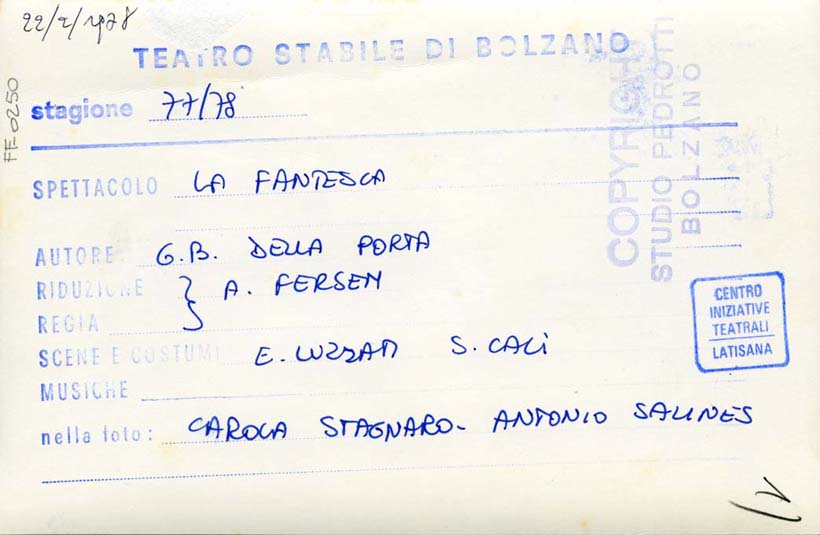 22/2/1978
TEATRO STABILE DI BOLZANO
stagione 77/78
FF-0250
COPYRIGHT
STUDIO PEDROTTI
BOLZANO
SPETTACOLO LA FANTESCA
AUTORE G.B. DELLA PORTA
RIDUZIONE } A. FERSEN
REGIA
SCENE E COSTUMI E. LUZZATI S. CALÌ
MUSICHE
CENTRO
INIZIATIVE
TEATRALI
LATISANA
nella foto: CAROLA STAGNARO - ANTONIO SALINES